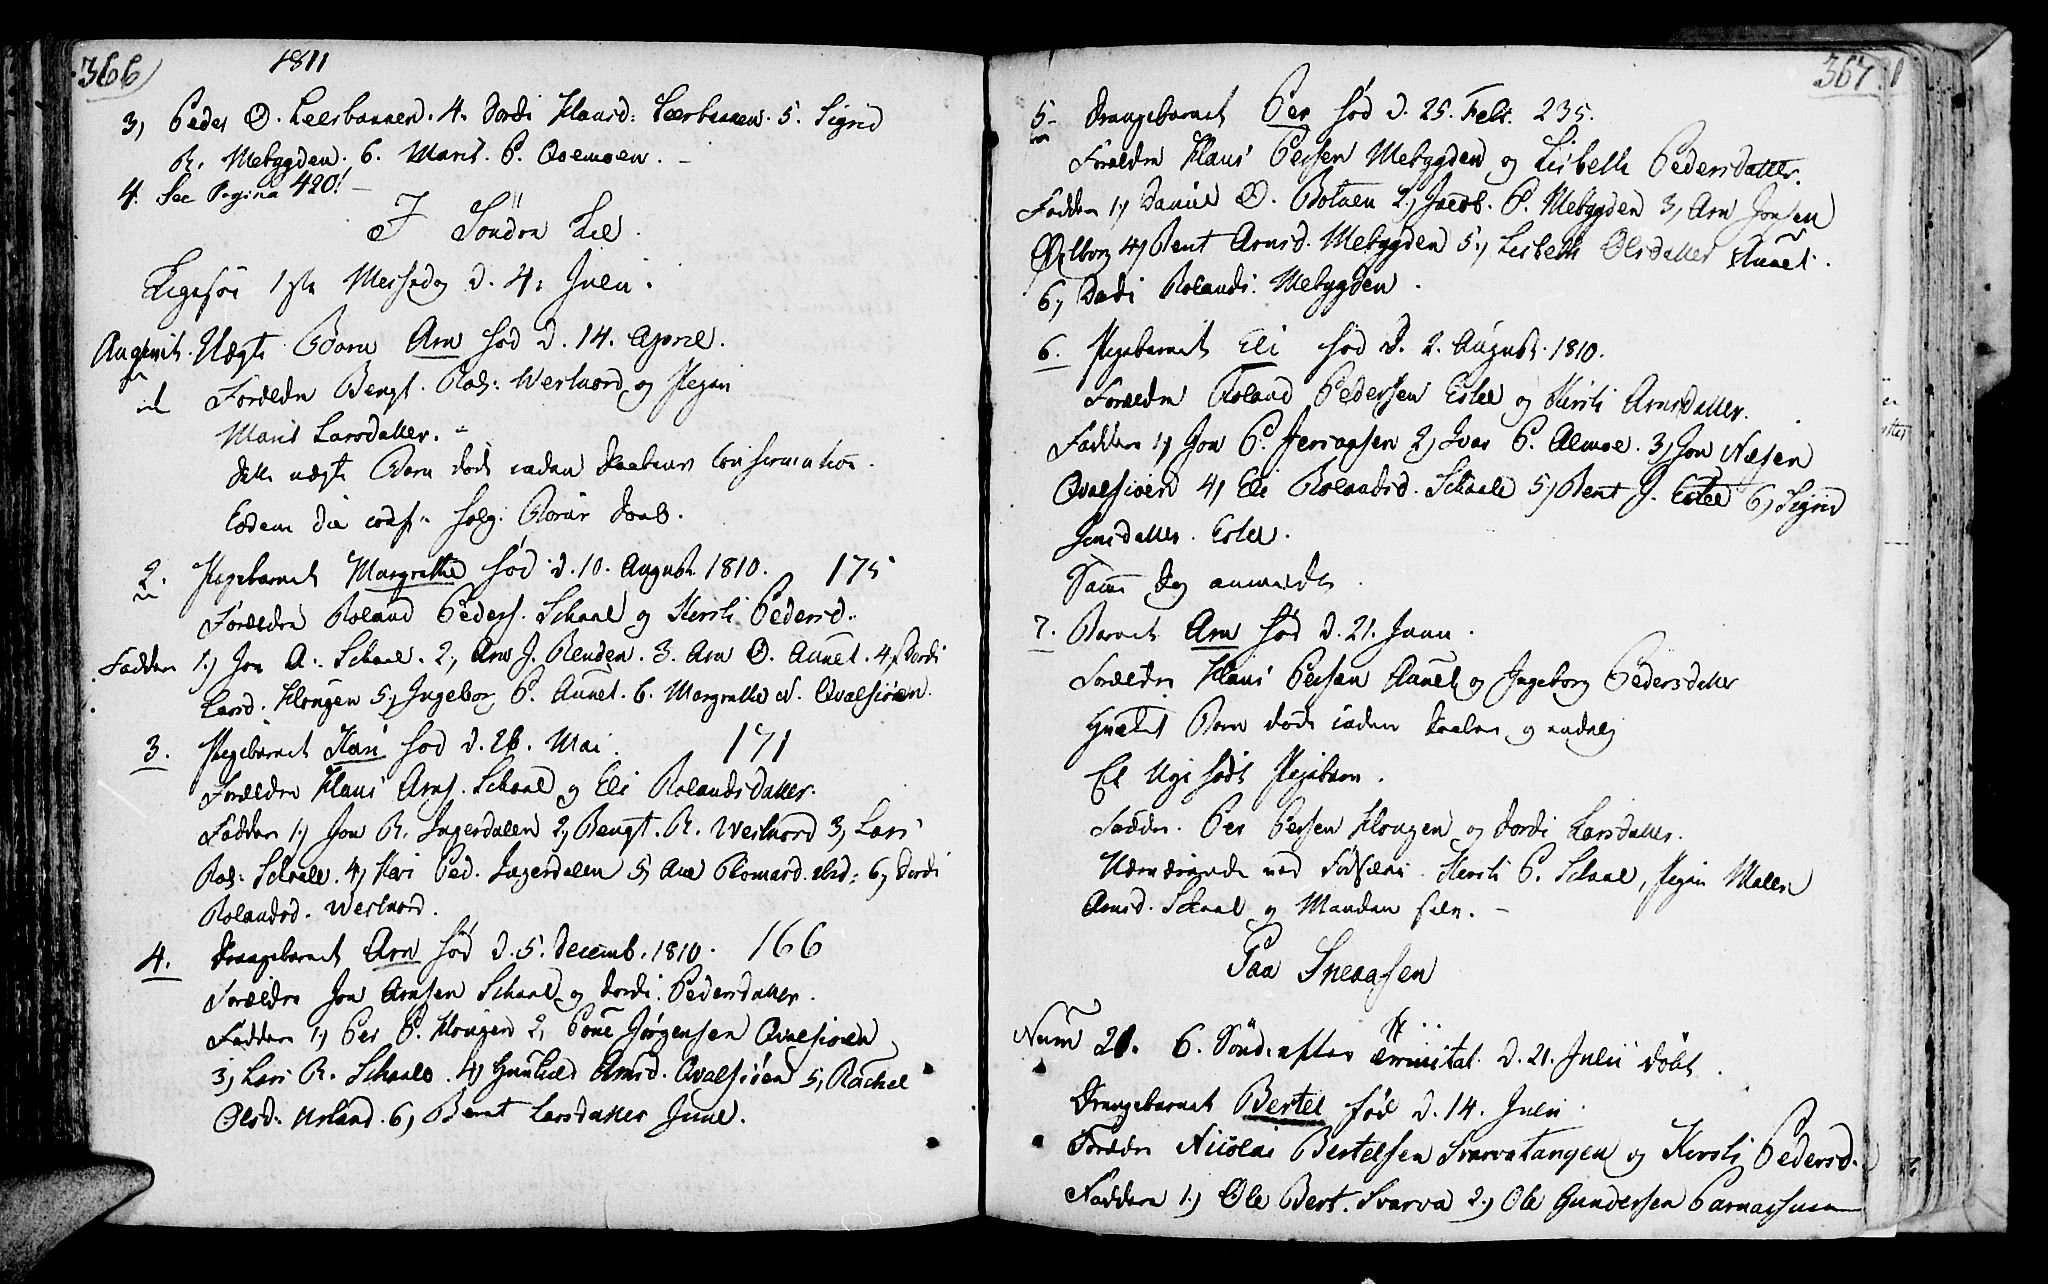 366)
1811
3, Peder O. Leerbakken. 4. Dordi Hansd: Leerbakken. 5. Sigrid
R. Mebygden. 6. Marit. P. Qvemoen.
4. See Pagina 420!
I Söndre Lie.
1ste Messedag d. 4. Julii.
Uægte Barn Arn fød d. 14. April.
Foreldre Bengt. Rol: Westnord og Pigen
Marit Larsdatter.
dette uægte Barn døde inden Daabens Confirmation.
Eodem die
2. Pigebarnet Margrethe fød d. 10. August. 1810. 175
Foreldre Roland Peders. Schaal og Kersti Pedersd.
Faddere 1.) Jon A. Schaal. 2, Arn J. Renden. 3. Arn O. Aunet. 4, Dordi
Larsd. Hougen 5, Ingebor P. Aunet. 6. Margrethe N. Qvelsiøen.
3. Pigebarnet Kari fød d. 26. Mai. 171
Foreldre Hans Arns. Schaal og Eli Rolandsdatter.
Faddere 1.) Jon R. Ingerdalen 2, Bengt. R. Westnord 3, Lars
Rol: Schaale. 4, Kari Ped. Ingerdalen 5, Ane 6, Dordi
Rolandsd. Westnord.
4. Drengebarnet Arn fød d. 5. Decemb. 1810. 166
Foreldre Jon Arnsen Schaal og Dordi Pedersdatter.
Faddere 1, Per P. Hougen 2, Jørgensen Qvelsiøen
3, Lars R. Schaale. 4, Gunhild Arnsd. Qvelsiøen 5, Rachel
Olsd. 6, Berret Larsdatter June.
367
5. Drengebarnet Per fød d. 25. Febr. 235.
Foreldre Hans Persen Mebygden og Lisbeth Pedersdatter.
Faddere 1, Daniel O. Botnen 2, Jacob. P. Mebygden 3, Arn Jonsen
4, Berit Arnsd. Mebygden 5, Lisbeth Olsdatter Aunet.
6, Dordi Rolands. Mebygden.
6. Pigebarnet Eli fød d. 2. August. 1810.
Foreldre Roland Pedersen Estel og Kersti Arnsdatter.
Faddere 1, Jon P. 2, Ivar P. Almoe. 3, Jon
Qvelsiøen 4, Eli Rolandsd. Schaale 5, Bent J. Estel 6, Sigrid
Jonsdatter. Estel.
Samme Dag anmeldte.
7. Barnet Arn fød d. 21. Junii.
Foreldre Hans Persen Aunet og Ingeborg Pedersdatter
Barn døde inden Daaben og
Et født Pigebarn.
Fadder. Per Persen Hougen og Dordi Larsdatter.
Nærværende ved Fødselen. Kersti P. Schaal, Pigen Malen
Arnsd. Schaal og Manden selv.
Paa Snaasen
Num 21. 6. Sönd: after Trinitat. d. 21. Julii døbt.
Drengebarnet Bertel fød d. 14. Julii.
Foreldre Nicolai Bertelsen Svarvatangen og Kersti Pedersd.
Faddere 1.) Ole Bert. Svarva 2.) Ole Gundersen